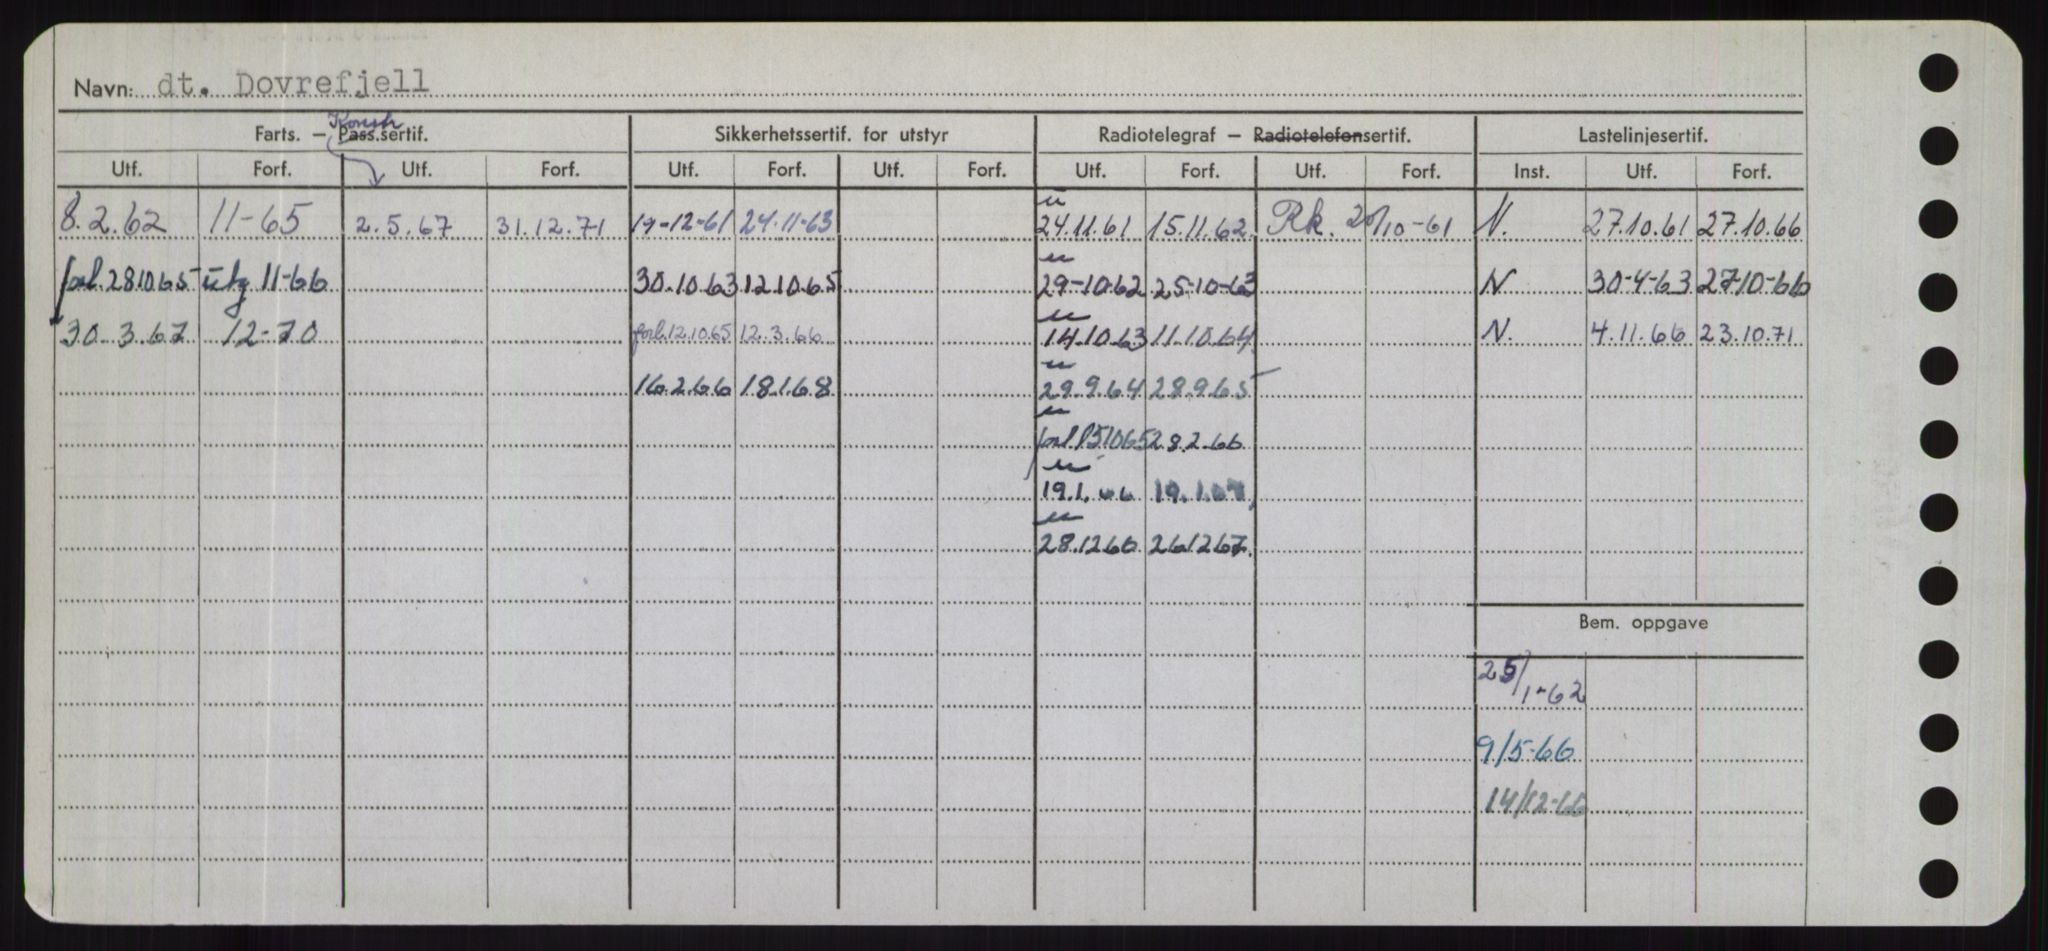 Navn: dt. Dovrefjell
Konstr
Farts. — Pass.sertif. Sikkerhetssertif. for utstyr Radiotelegraf — Radiotelefonsertif. Lastelinjesertif.
Utf. Forf. Utf. Forf. Utf. Forf. Utf. Forf. Utf. Forf. Utf. Forf. Inst. Utf. Forf.
u
8.2.62 11-65 2.5.67 31.12.71 19-12-61 24.11-63 24.11.61 15.11.62 Rk. 20/10-61 N. 27.10.61 27.10.66
u
forl. 28.10.65 utg 11-66 30.10.63 12.10.65 29-10.62 25-10-63 N 30-4-63 27-10-66
u
30.3.67 12-70 forl. 12.10.65 12.3.66 14.10.63 11.10.64 N. 4.11.66 23.10.71
u
16.2.66 18.1.68 29.9.64 28.9.65
u
forl 28.2.66
u
19.1.66 19.1.67
u
28.12.66 26.12.67.
Bem. oppgave
25/1-62
9/5-66
14/12-66